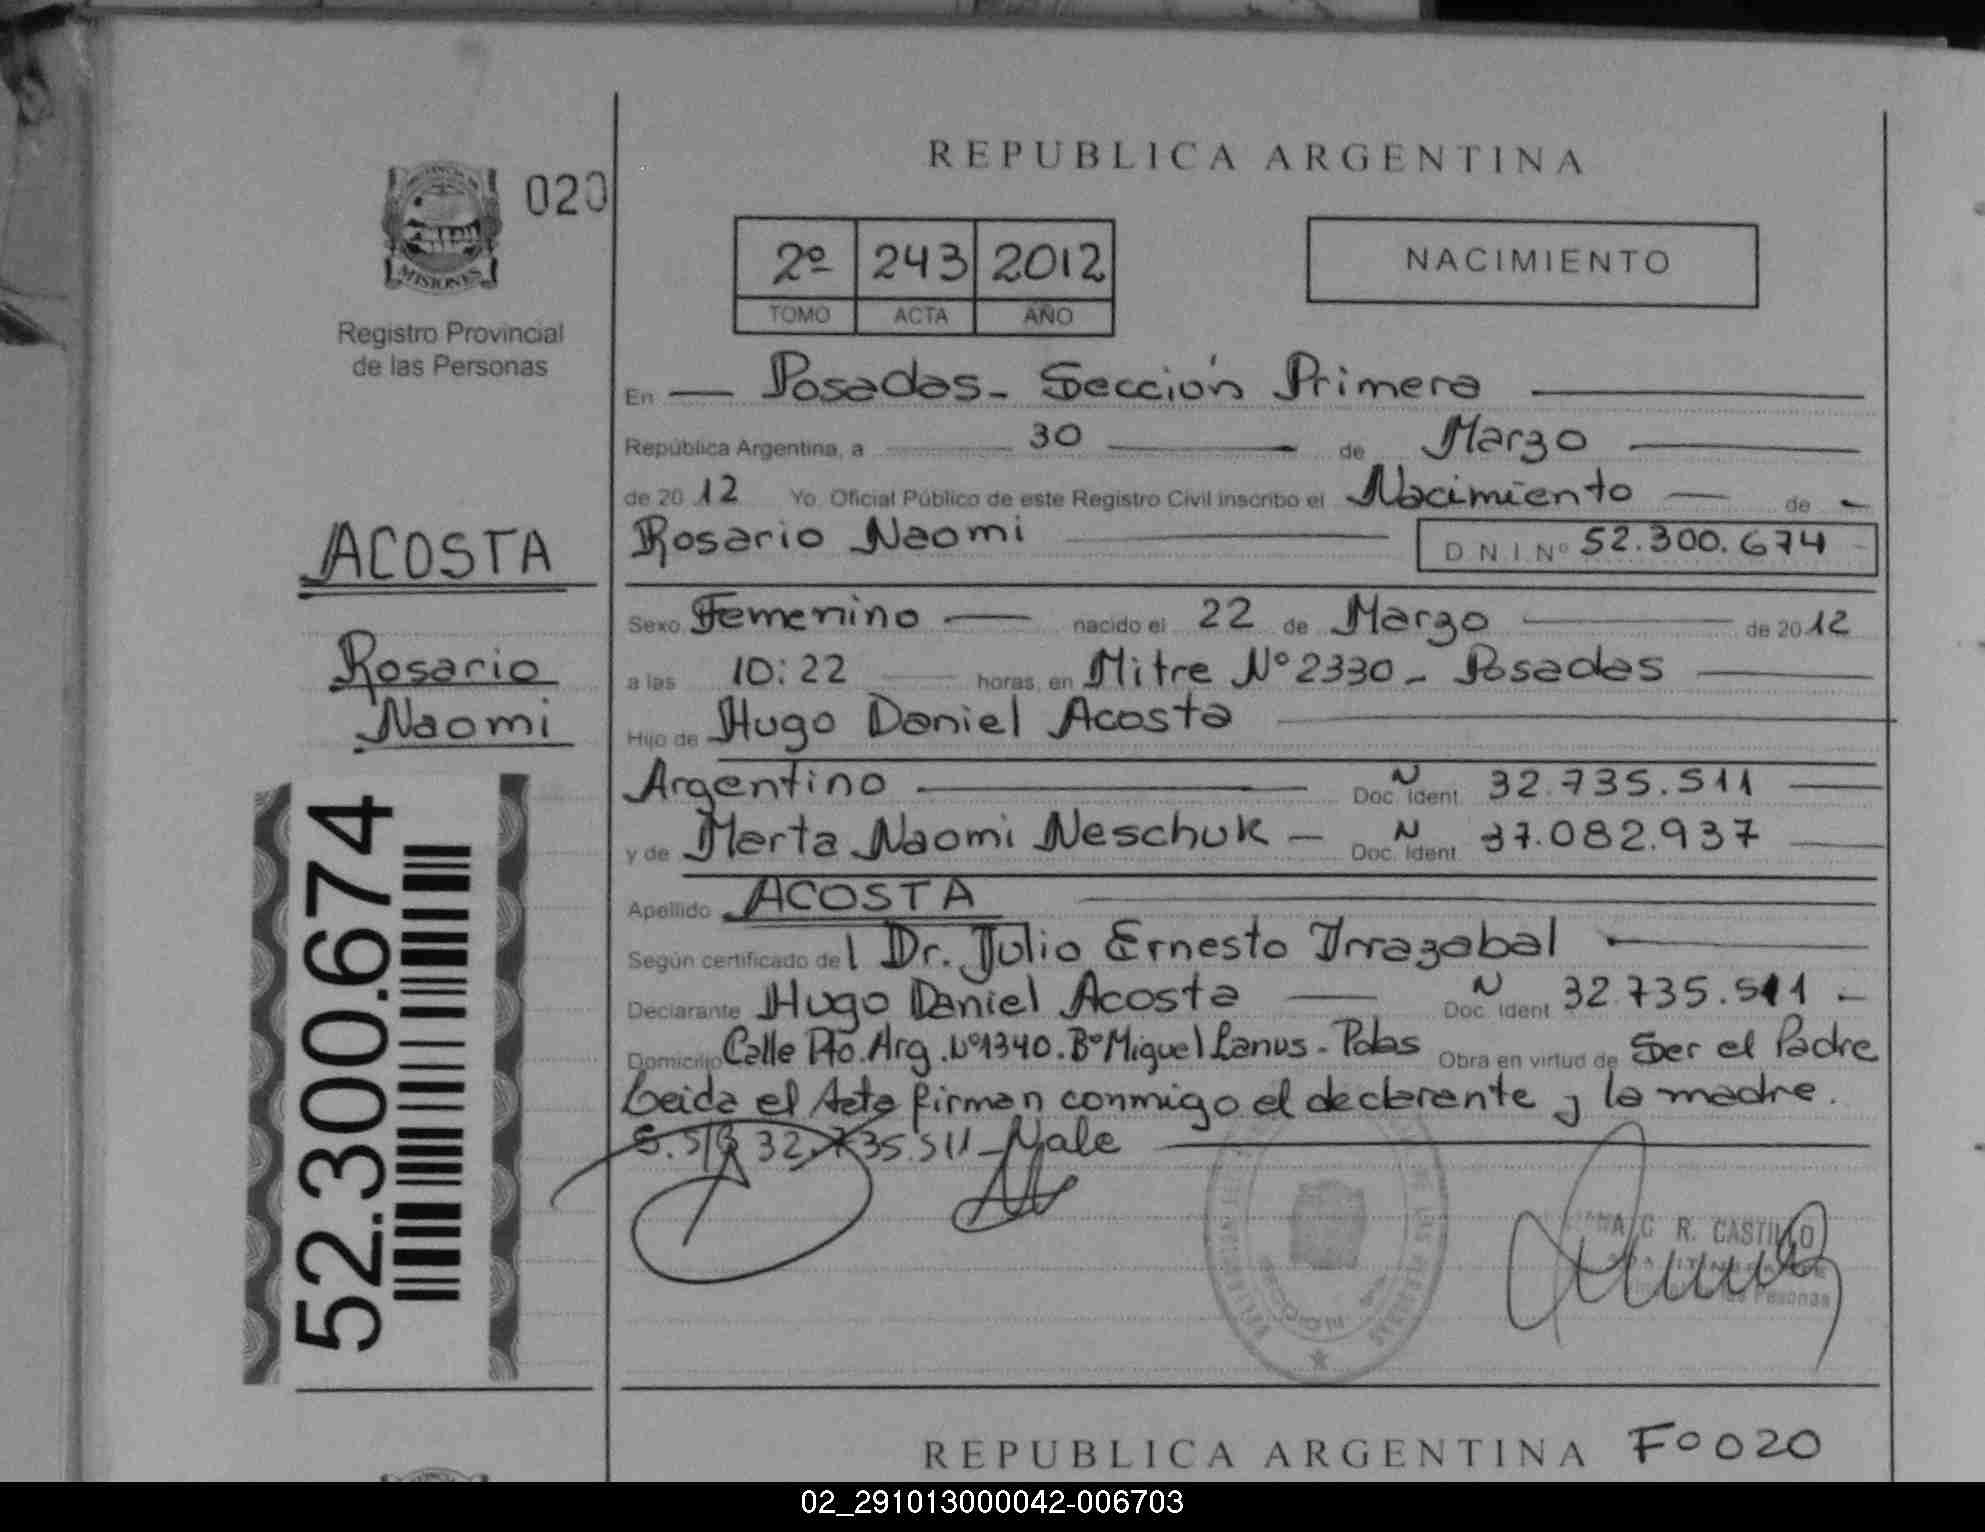 REPUBLICA ARGENTINA
020
2º 243 2012
TOMO ACTA AÑO
NACIMIENTO
MISIONES
Registro Provincial
de las Personas
En — Posadas - Sección Primera
República Argentina, a 30 de Marzo
de 20 12 Yo, Oficial Público de este Registro Civil inscribo el Nacimiento — de -
ACOSTA
Rosario Naomi D.N.I. Nº 52.300.674
Sexo Femenino — nacido el 22 de Marzo de 20 12
Rosario
Naomi
a las 10:22 horas, en Mitre Nº 2330 - Posadas
Hijo de Hugo Daniel Acosta
Argentino N Doc. Ident. 32.735.511
y de Marta Naomi Neschuk — N Doc. Ident. 37.082.937
Apellido ACOSTA
Según certificado del Dr. Julio Ernesto Irrazabal
Declarante Hugo Daniel Acosta — N Doc. Ident. 32.735.511 -
Domicilio Calle Pto. Arg. Nº1340. Bº Miguel Lanus - Pdas Obra en virtud de Ser el Padre
Leida el Acta firman conmigo el declarante y la madre.
S. S/B 32.735.511 - Vale
52.300.674
C R. CASTILLO
Personas
REPUBLICA ARGENTINA Fº 020
02_291013000042-006703